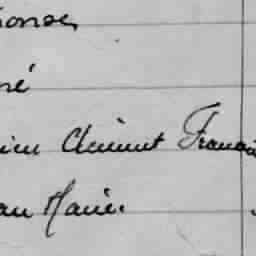 phonse,
né
ien Clément François
an Marie.